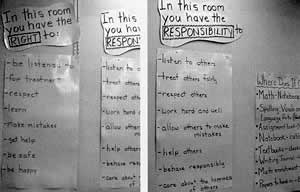 In this room
you have the
RIGHT to:
- be listened to
- fair treatment
- respect
- learn
- make mistakes
- get help
- be safe
- be happy
In this
you ha
RESPON
- listen to o
- treat others
- respect o
- work hard
- allow othe
mistakes
- help oth
- behave resp
- care about
of
In this room
you have the
RESPONSIBILITY to
- listen to others
- treat others fairly
- respect others
- work hard and well
- allow others to make
mistakes
- help others
- behave responsibly
- care about the happiness
of others
Where Does It
• Math-Notebook
• Spelling, Vocab
Language Arts
• Assignment
• Notebook-
• Textbooks-
• Writing Journal
• Math
• Papers to